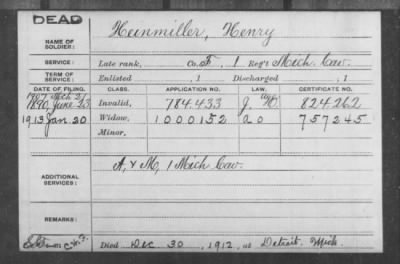 DEAD
NAME OF SOLDIER: Heinmiller, Henry
SERVICE: Late rank, Co. F, 1 Reg't Mich Cav.
TERM OF SERVICE: Enlisted , 1 Discharged , 1
DATE OF FILING. CLASS. APPLICATION NO. LAW. CERTIFICATE NO.
1907 Mch 21
1890 June 23 Invalid, 784.433 824262
1913 Jan 20 Widow, 1000152 757245
Minor,
ADDITIONAL SERVICES: A, & M, 1 Mich Cav.
REMARKS:
Died Dec 30, 1912, at Detroit Mich.